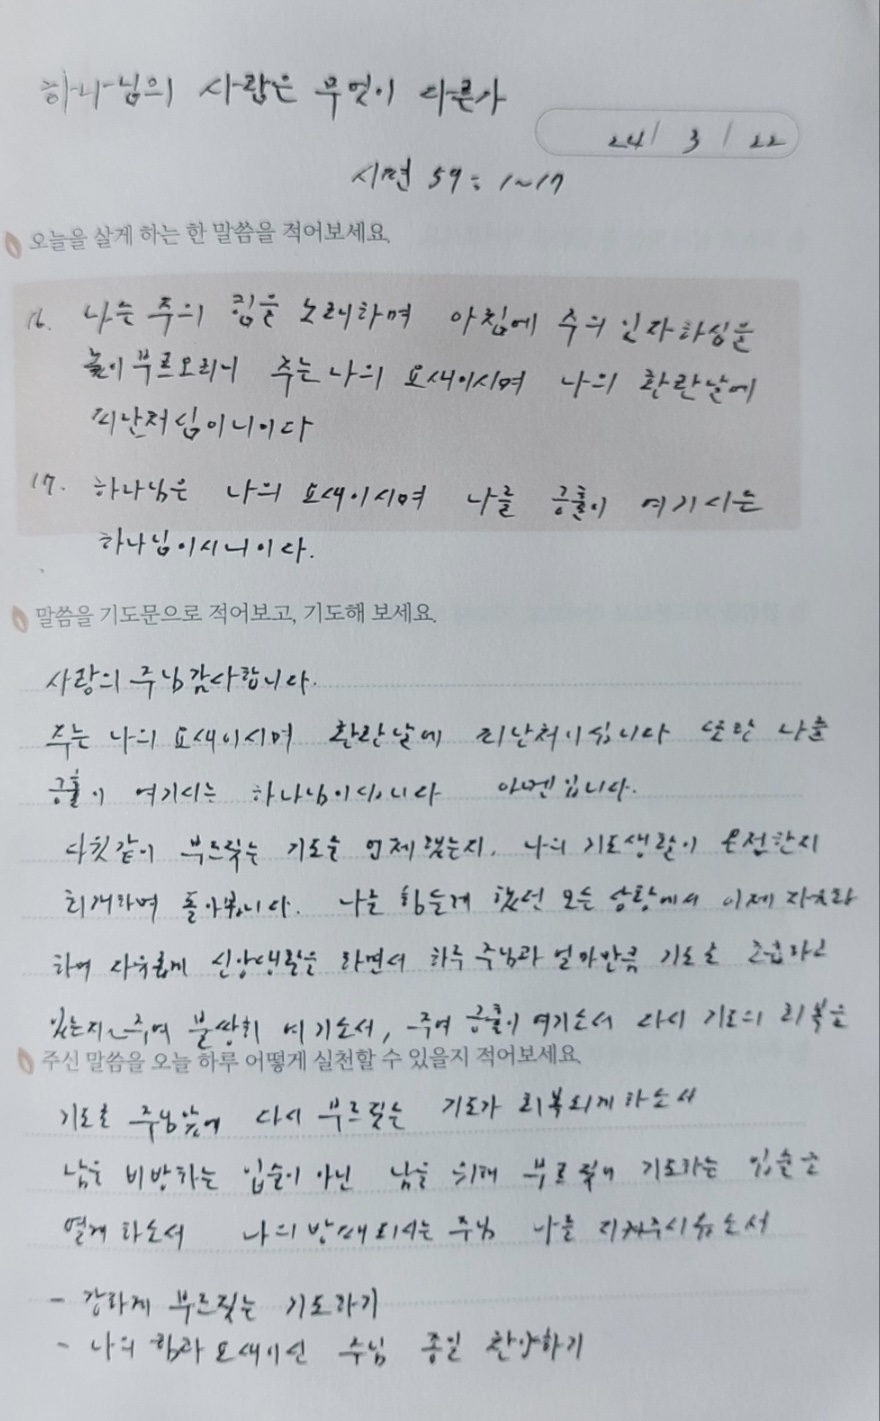 하나님의 사랑은 무엇이 다른가
24/ 3 / 22
시편 59: 1~17
오늘을 살게 하는 한 말씀을 적어보세요.
16. 나는 주의 힘을 노래하며 아침에 주의 인자하심을
높이 부르오리니 주는 나의 요새이시며 나의 환란날에
피난처심이니이다
17. 하나님은 나의 요새이시며 나를 긍휼이 여기시는
하나님이시니이다.
말씀을 기도문으로 적어보고, 기도해 보세요.
사랑의 주님 감사합니다.
주는 나의 요새이시며 환란날에 피난처이십니다 또한 나를
긍휼이 여기시는 하나님이십니다 아멘입니다.
다윗같이 부르짖는 기도를 언제 했는지. 나의 기도생활이 온전한지
회개하며 돌아봅니다. 나를 힘들게 했던 모든 상황에서 이제
하여 자유롭게 신앙생활을 하면서 하루 주님과 얼마만큼 기도로 교제하고
있는지 주여 불쌍히 여기소서, 주여 긍휼이 여기소서 다시 기도의 회복을
주신 말씀을 오늘 하루 어떻게 실천할 수 있을지 적어보세요.
기도로 주님앞에 다시 부르짖는 기도가 회복되게 하소서
남을 비방하는 입술이 아닌 남을 위해 부르짖어 기도하는 입술로
열게 하소서 나의 방패되시는 주님 나를 지켜주시옵소서
- 강하게 부르짖는 기도하기
- 나의 힘과 요새이신 주님 종일 찬양하기